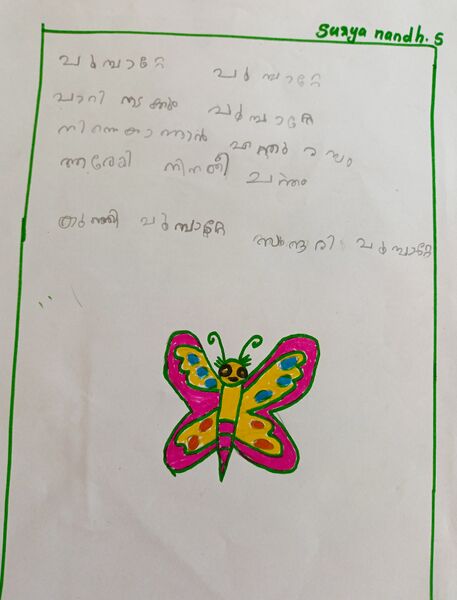 Surya nandh. S
പൂമ്പാറ്റേ പൂമ്പാറ്റേ
പാറി നടക്കും പൂമ്പാറ്റേ
നിന്നെകാണാൻ എന്തു രസം
ആരേകി നിനക്കീ ചന്തം
കുഞ്ഞി പൂമ്പാറ്റേ സുന്ദരി പൂമ്പാറ്റേ